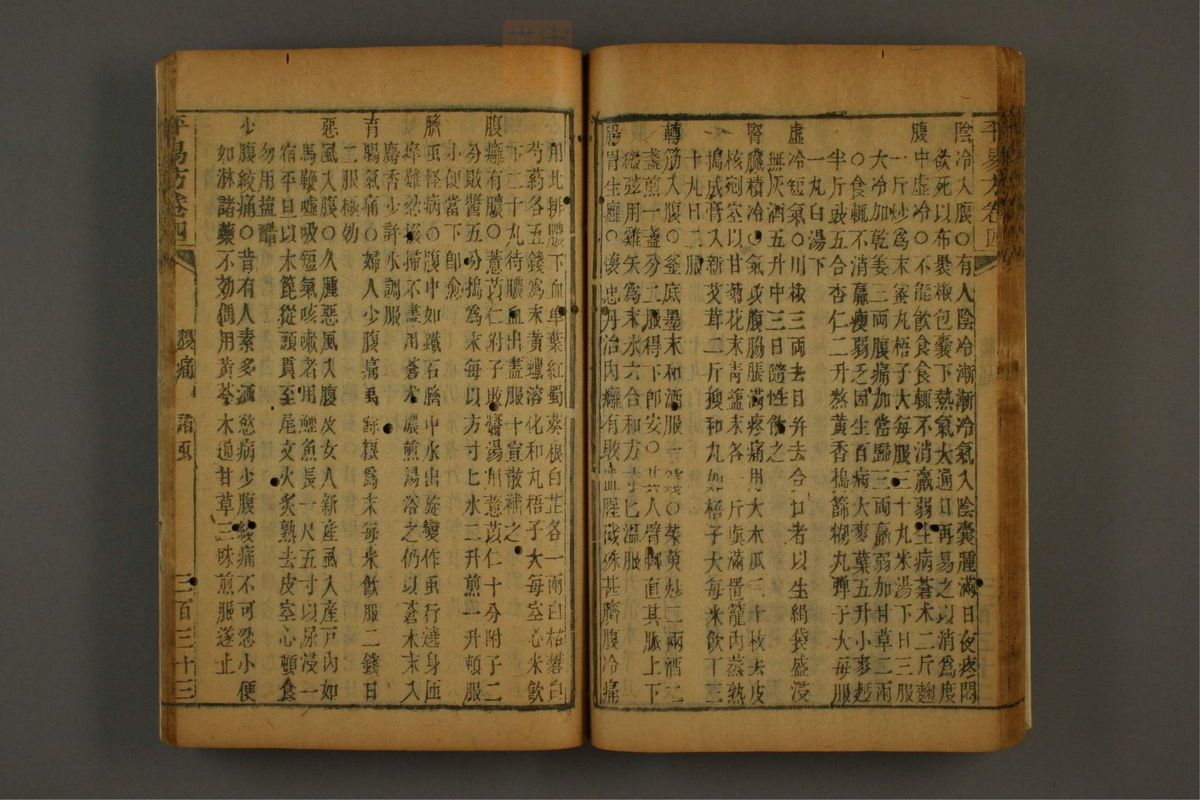 陰冷入腹○有人陰冷漸漸冷氣入陰囊腫滿日夜疼悶
欲死以布裹椒包囊下熱氣大通日再易之以消爲度
腹中虛冷○不能飲食食輒不消羸弱生病蒼术二斤麴
一斤炒爲末蜜丸梧子大每服三十九米湯下日三服
大冷加乾姜三兩腹痛加當歸三兩羸弱加甘草二兩
○食輒不消羸瘦弱乏因生百病大麥蘖五升小麥麪
半斤豉五合杏仁二升熬黃香搗篩糊丸彈子大每服
一丸白湯下
虛冷短氣○川椒三兩去目并去合口者以生絹袋盛浸
無灰酒五升中三日隨性飲之
腎臟積冷○氣攻腹脇脹滿疼痛用大木瓜三十枚去皮
核剜空以甘菊花末青鹽末各一斤填滿置籠內蒸熟
搗成膏入新艾茸二斤搜和丸如梧子大每米飲下三
十丸日二服
轉筋入腹○釜底墨末和酒服一錢○茱萸炒二兩酒二
盞煎一盞分二服得下卽安○其人臂脚直其脈上下
微弦用雞矢爲末水六合和方寸匕溫服
腸胃生癰○懷忠丹治內癰有敗血腥穢殊甚臍腹冷痛
用此排膿下血單葉紅蜀葵根白芷各一兩白枯礬白
芍藥各五錢爲末黃蠟溶化和丸梧子大每空心米飲
下二十丸待膿血出盡服十宣散補之
腹癰有膿○薏苡仁附子敗醬湯用薏苡仁十分附子二
分敗醬五分搗爲末每以方寸匕水二升煎一升頓服
小便當下卽愈
臍虫怪病○腹中如鐵石臍中水出旋變作虫行遶身匝
痒難忍撥掃不盡用蒼术濃煎湯浴之仍以蒼术末入
麝香少許水調服
盲腸氣痛○婦人少腹痛兎絲根爲末每米飲服二錢日
二服極効
惡風入腹○久腫惡風入腹及女人新産風入産戶內如
馬鞭噓吸短氣咳嗽者用鯉魚長一尺五寸以尿浸一
宿平旦以木篦從頭貫至尾文火炙熟去皮空心頓食
勿用鹽醋
少腹絞痛○昔有人素多酒慾病少腹絞痛不可忍小便
如淋諸藥不効偶用黃芩木通甘草三味煎服遂止
平易方卷四
腹痛 諸虫
三百三十三